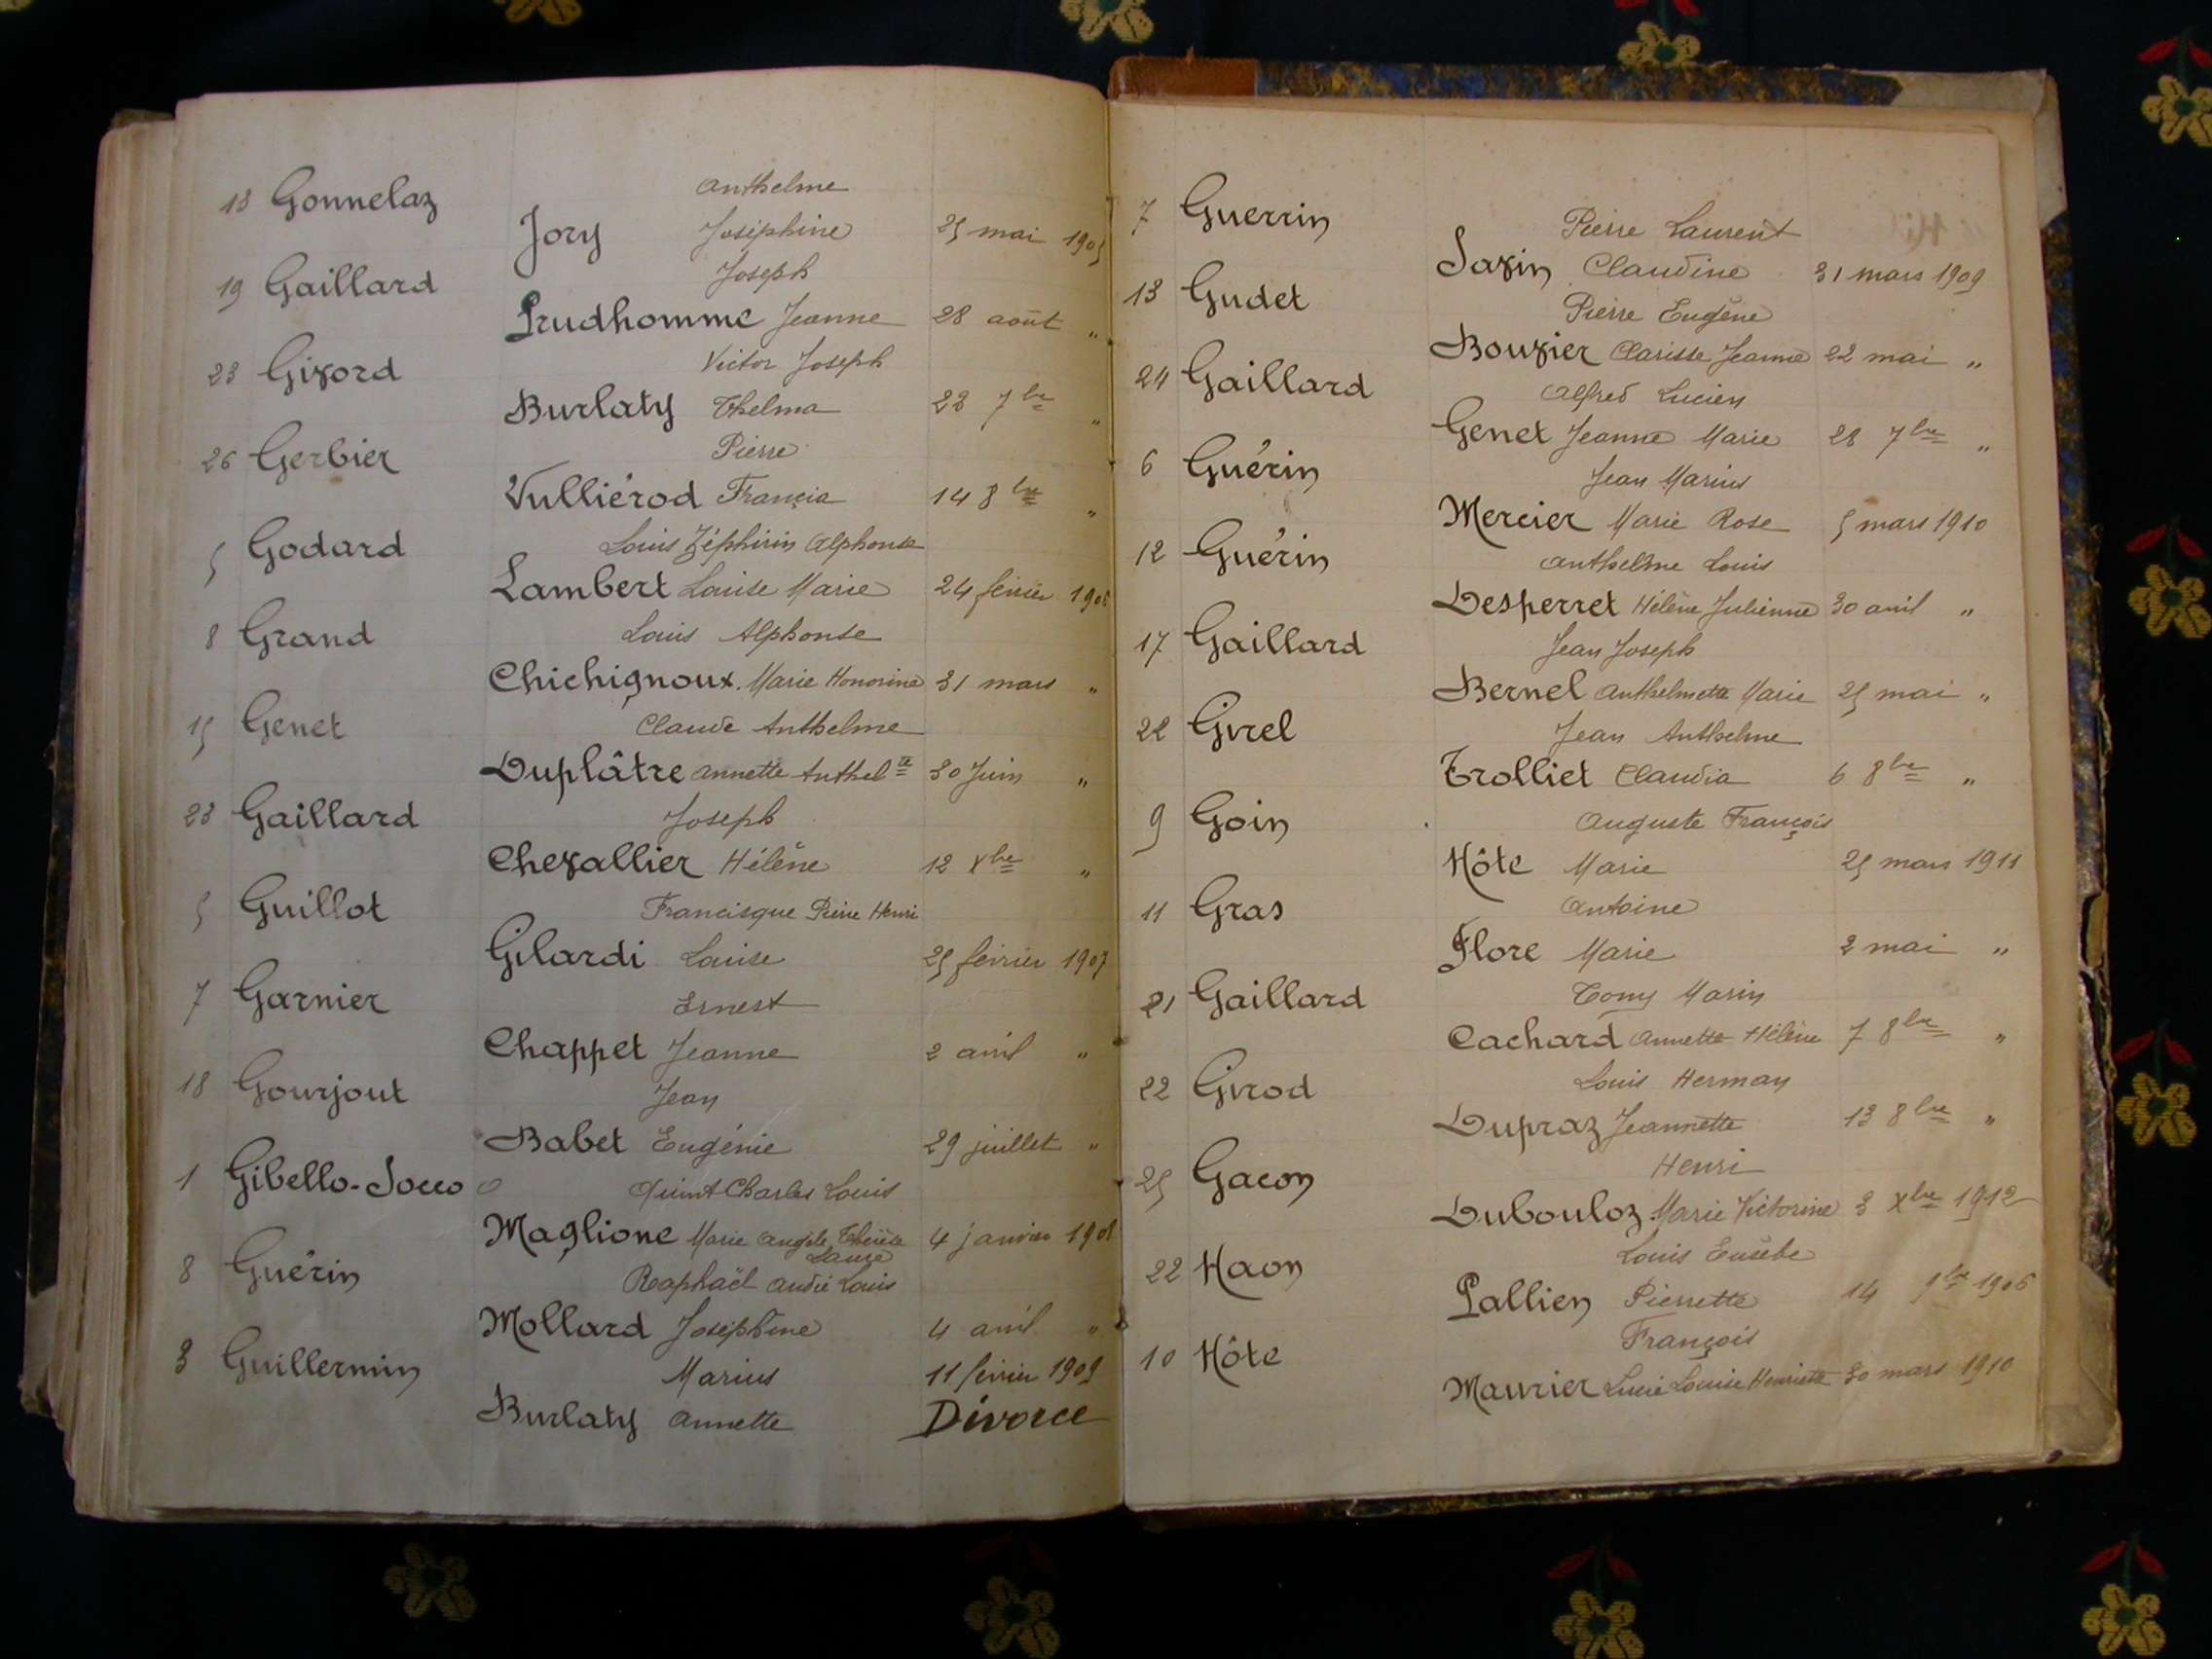 Anthelme
13 Gonnelaz
Jory Joséphine 25 mai 1905
Joseph
19 Gaillard
Prudhomme Jeanne 28 août "
Victor Joseph
23 Givord
Burlaty Thelma 23 7bre "
Pierre
26 Gerbier
Vulliérod Francia 14 8bre "
Louis Zéphirin Alphonse
5 Godard
Lambert Louise Marie 24 février 1906
Louis Alphonse
8 Grand
Chichignoux Marie Honorine 31 mars "
Claude Anthelme
15 Genet
Duplâtre Annette Anthelte 30 Juin "
Joseph
23 Gaillard
Chevallier Hélène 12 Xbre "
Francisque Pierre Henri
5 Guillot
Gilardi Louise 25 février 1907
Ernest
7 Garnier
Chappet Jeanne 2 avril "
Jean
18 Gourjout
Babet Eugénie 29 juillet "
1 Gibello-Socco Charles Louis
Maglione Marie Angèle Thérèse 4 janvier 1908
Laure
Raphaël André Louis
8 Guérin
Mollard Joséphine 4 avril "
Marius 11 février 1909
3 Guillermin
Burlaty Annette Divorce
7 Guerrin
Pierre Laurent
Savin Claudine 31 mars 1909
13 Gudet
Pierre Eugène
Bouvier Clarisse Jeanne 22 mai "
24 Gaillard
Alfred Lucien
Genet Jeanne Marie 28 7bre "
6 Guérin
Jean Marius
Mercier Marie Rose 5 mars 1910
12 Guérin
Anthelme Louis
Desperret Hélène Julienne 30 avril "
17 Gaillard
Jean Joseph
Bernel Anthelmette Marie 25 mai "
22 Girel
Jean Anthelme
Trolliet Claudia 6 8bre "
9 Goin
Auguste François
Hôte Marie 25 mars 1911
11 Gras
Antoine
Flore Marie 2 mai "
21 Gaillard
Tony Marin
Cachard Annette Hélène 7 8bre "
22 Girod
Louis Herman
Dupraz Jeannette 13 8bre "
25 Gacon
Henri
Dubouloz Marie Victorine 3 Xbre 1912
22 Haon
Louis Eusèbe
Pallien Pierrette 14 9bre 1906
10 Hôte
François
Maurier Lucie Louise Henriette 30 mars 1910